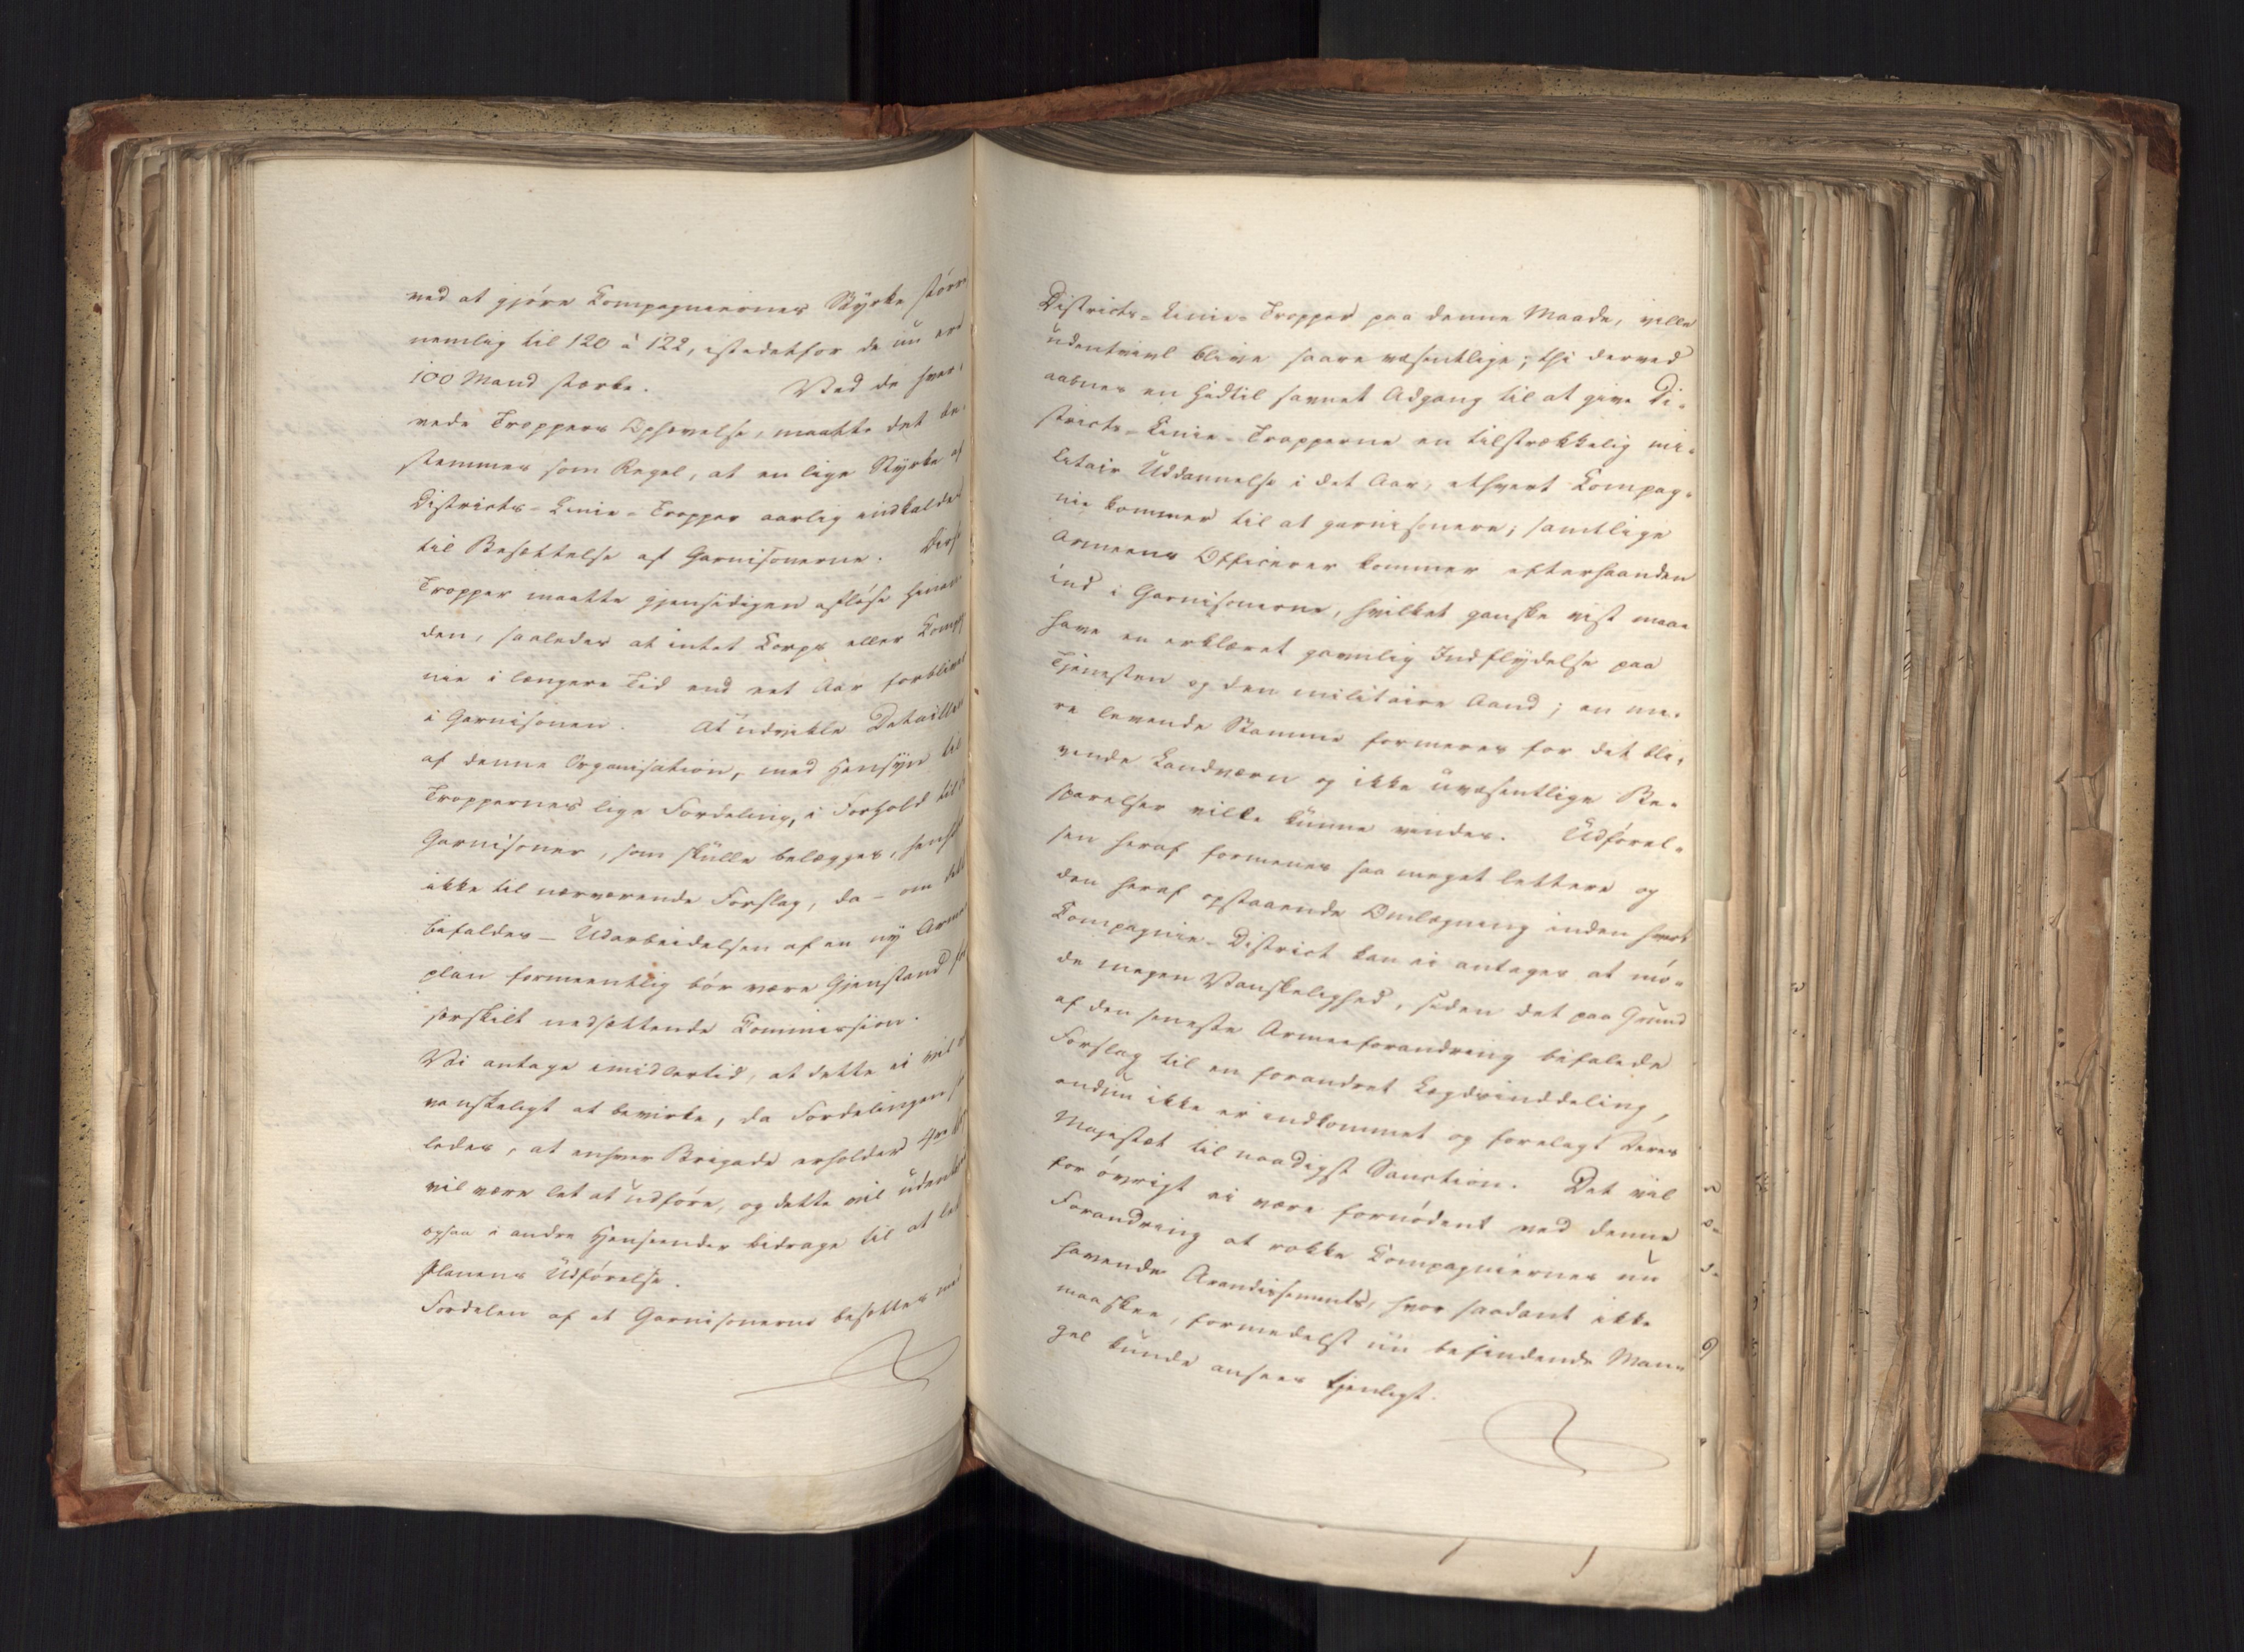 ved at gjöre Compagniernes Styrke större
nemlig til 120 à 122, istedetfor de nu ere
100 Mand stærke. Ved de hver-
vede Troppers Ophævelse, maatte det be-
stemmes som Regel, at en lige Styrke af
Districts-Linie-Tropper aarlig indkaldes
til Besættelse af Garnisonerne. Disse
Tropper maatte gjensidigen aflöse hinan-
den, saaledes at intet Corps eller Compag
nie i længere Tid end eet Aar forbliver
i Garnisonen. At udvikle Detaillen
af denne Organisation, med Hensyn til
Troppernes lige Fordeling, i Forhold til
Garnisoner, som skulle belægges, henhör
ikke til nærværende Forslag, da – om dette
befaldes – Udarbeidelsen af en ny Armee
plan formeentlig bör være Gjenstand for
særskilt nedsættende Commission.
Vi antage imidlertid, at dette ei vil
vanskeligt at bevirke, da Fordelingen saa
ledes, at enhver Brigade erholder 4re
vil være let at udföre, og dette vil udentvivl
ogsaa i andre Henseender bidrage til at let
Planens Udförelse.
Fordelen af at Garnisonerne besættes med
Districts-Linie-Tropper paa denne Maade, ville
udentvivl blive saare væsentlige; thi derved
aabnes en hidtil savnet Adgang til at give Di-
stricts-Linie-Tropperne en tilstrækkelig mi-
litair Uddannelse i det Aar, ethvert Compag-
nie kommer til at garnisonere; samtlige
Armeens Officerer kommer efterhaanden
ind i Garnisonerne, hvilket ganske vist maae
have en erklæret gavnlig Indflydelse paa
Tjenesten og den militaire Aand; en me-
re levende Stamme formeres for det bli-
vende Landværn og ikke uvæsentlige Be-
sparelser ville kunne vindes. Udförel-
sen heraf formenes saa meget lettere og
den heraf opstaaende Omlægning inden hvert
Compagnie-District kan ei antages at mö-
de megen Vanskelighed, siden det paa Grund
af den seneste Armeeforandring befalede
Forslag til en forandret Lægdsinddeling,
endnu ikke er indkommet og forelagt Deres
Majestæt til naadigst Sanction. Det vil
for övrigt ei være fornödent ved denne
Forandring at rokke Compagniernes nu
havende Arondissements, hvor saadant ikke
maaskee, formedelst nu befindende Man-
gel kunde ansees tjenligt.